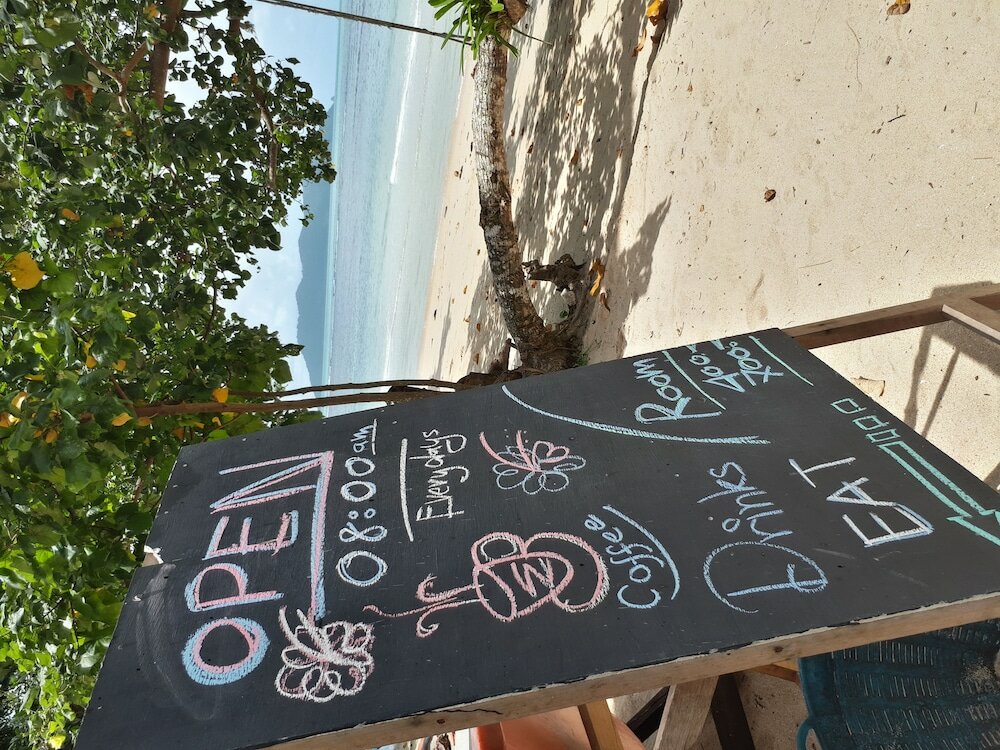 OPEN
08:00am
Everydays
Coffee
Room
Drinks
EAT